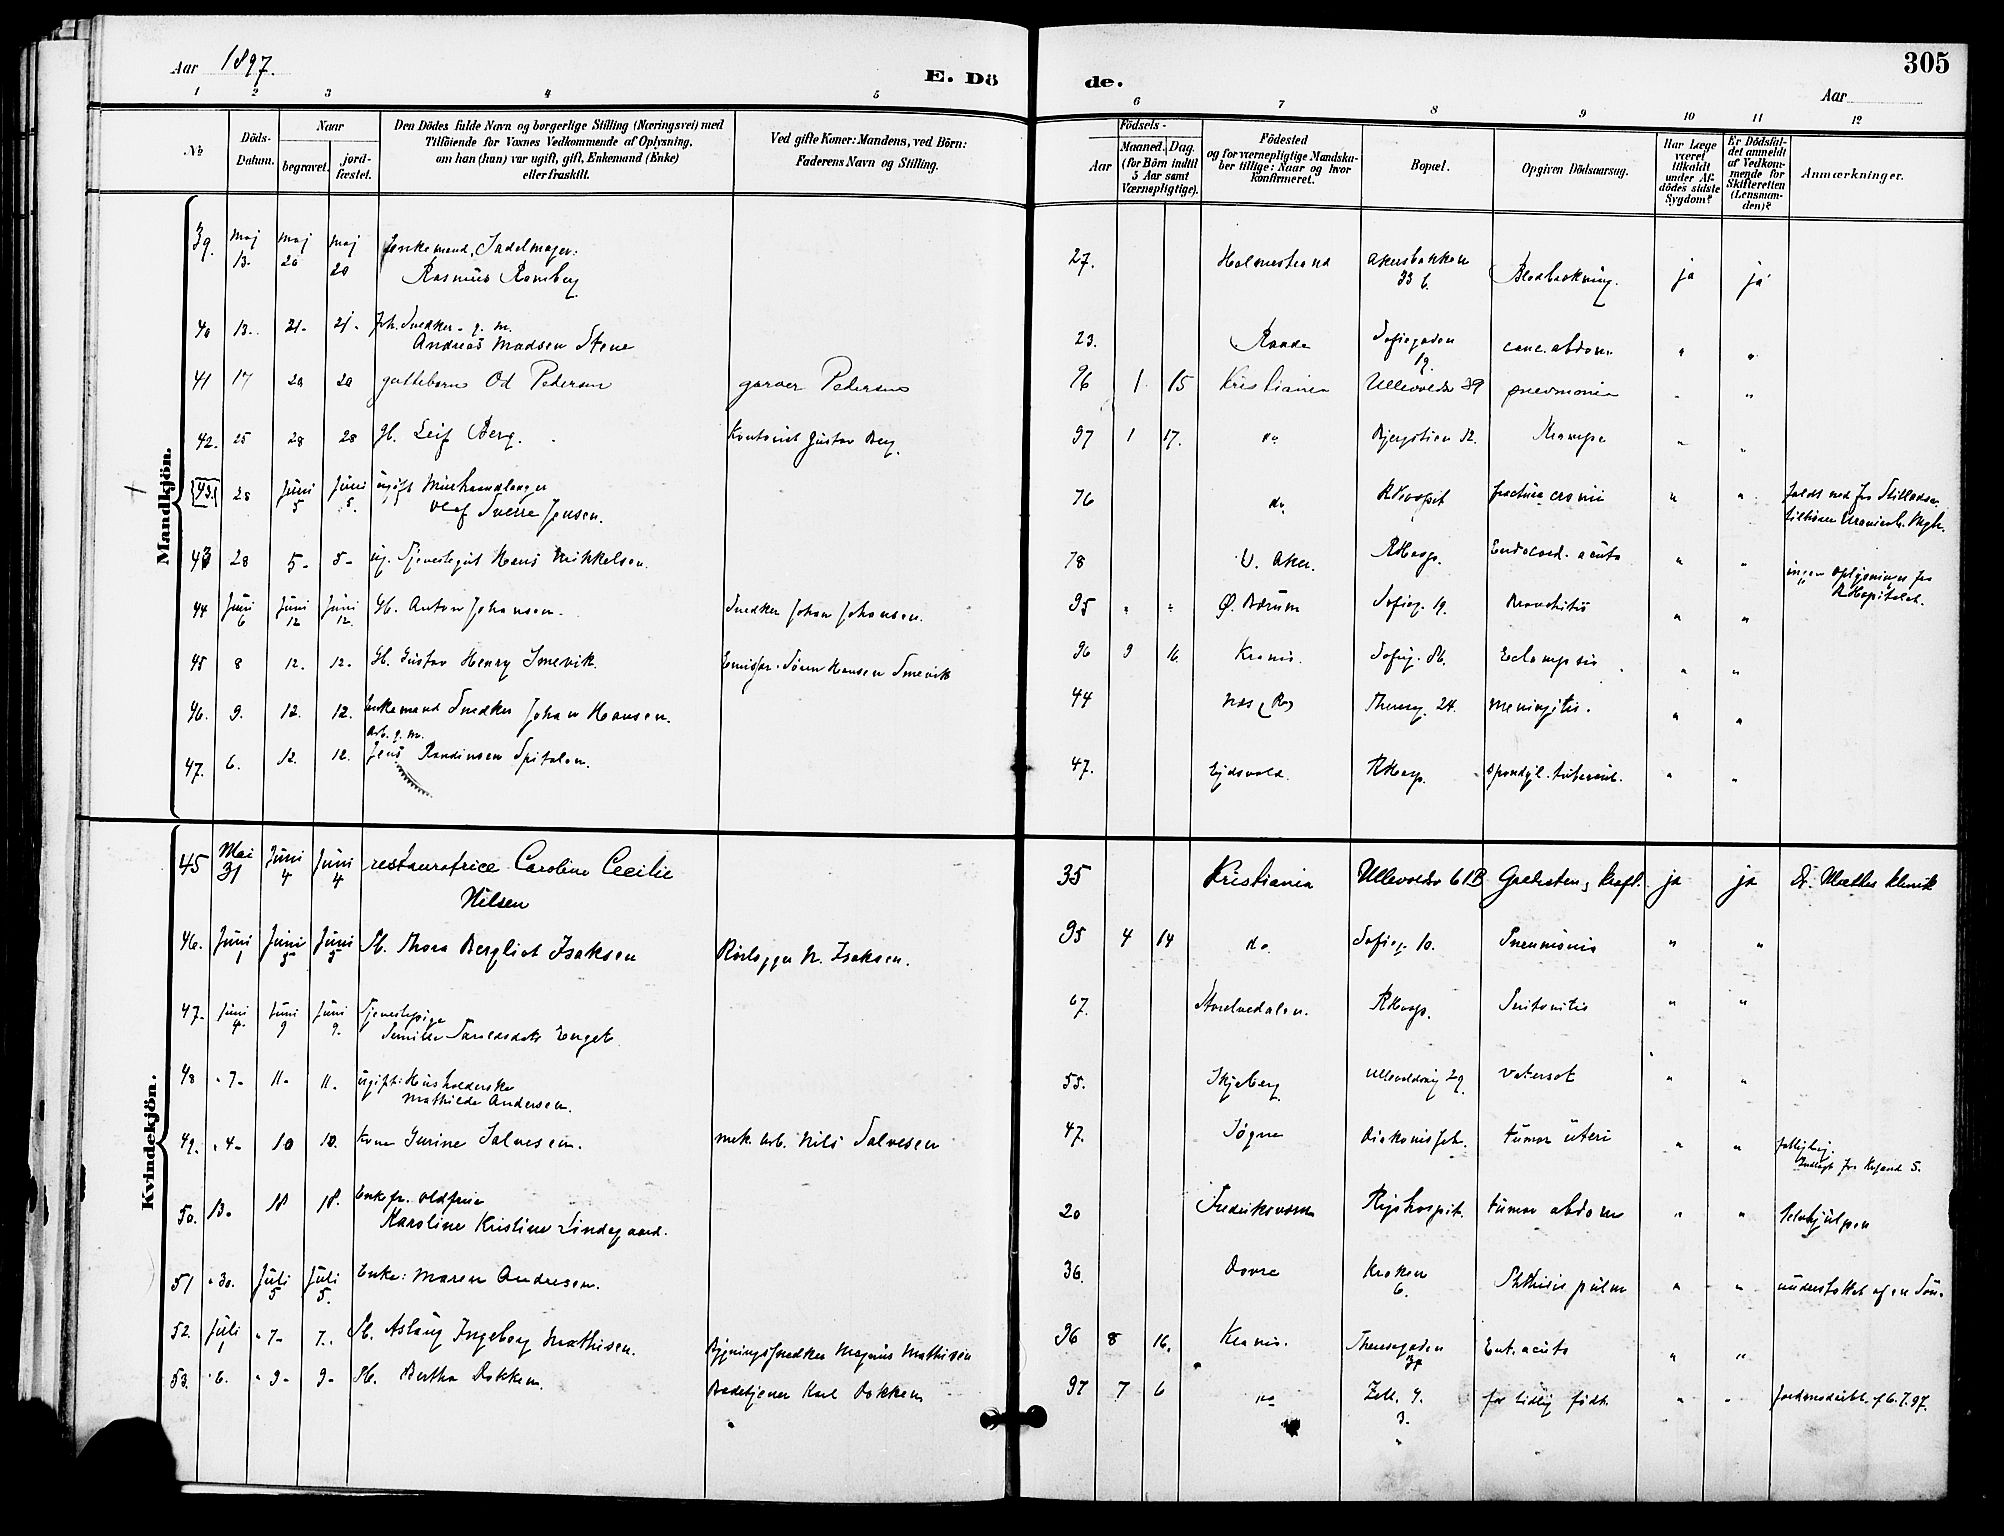 Aar 1897.
E. Dö
de.
305
Aar
1 2 3 4 5 6 7 8 9 10 11 12
No
Döds-Datum.
Naar
begravet.
jord-fæstet.
Den Dödes fulde Navn og borgerlige Stilling (Næringsvei) med
Tilföiende for Voxnes Vedkommende af Oplysning,
om han (hun) var ugift, gift, Enkemand (Enke)
eller fraskilt.
Ved gifte Koner: Mandens, ved Börn:
Faderens Navn og Stilling.
Födsels-
Aar
Maaned. Dag.
(for Börn indtil
5 Aar samt
Værnepligtige).
Födested
og for værnepligtige Mandska-
ber tillige: Naar og hvor
konfirmeret.
Bopæl.
Opgiven Dödsaarsag.
Har Læge
været
tilkaldt
under Af-
dödes sidste
Sygdom?
Er Dödsfal-
det anmeldt
af Vedkom-
mende for
Skifteretten
(Lensman-
den)?
Anmærkninger.
Mandkjön.
39. Maj 13. Maj 20 Maj 20 Enkemand, Sadelmager:
Rasmus Romberg 27. Holmestrand Akersbakken 33 b. ja ja
40 13. 21- 21- Snedker g. m.
Andreas Madsen Stene 23. Raade Sofiegaden 19. canc. abdom. " "
41 17 20 20 guttebarn Od Pedersen garver Pedersen 96 1 15 Kristiania Ullevoldsv 39 pneumonia " "
42. 25 28 28 Gb. Leif Berg. Kontorist Gustav Berg. 97 1 17. do Bjergstien 12. Krampe " "
43. 28 Juni 5 Juni 5. ugift Murhaandlanger
Olaf Sverre Jensen. 76 do RHospit fractura cranii " " faldt ned fra
43 28 5- 5- ug. Tjenestegut Hans Mikkelsen. 78 V. Aker. RHosp. Endocard. acuta " " ingen oplysninger fra
RHospitalet.
44 Juni 6 Juni 12 Juni 12. Gb. Anton Johansen. Snedker Johan Johansen. 95 " " Ø. Bærum Sofieg. 19. Bronchitis " "
45 8 12. 12. Gb. Gustav Henry Smevik. Søren Hansen Smevik 96 9 16. Krania. Sofieg. Eclampsis " "
46. 9. 12. 12. Enkemand Snedker Johan Hansen. 44 Næs, Rom Thereseg. 24. Meningitis. " "
47. 6. 12. 12. arb. g. m.
Jens Spitalen. 47. Ejdsvold. RHosp. Spondyl. tubercul. " "
Kvindekjön.
45 Mai 31 Juni 4 Juni 4 restauratrice Caroline Cecilie
Nilsen 35 Kristiania Ullevoldsv 61B Kræft. ja ja Dr. Mallings klinik
46. Juni 1 Juni 3 Juni 3 Pb. Thora Bergliot Isaksen Rørlægger N. Isaksen. 95 4 14 do. Sofieg. 10. Pneumonia " "
47. Juni 4. Juni 9 Juni 9. Tjenestepige 67. RHosp. Peritonitis " "
48 " 7- 11- 11. ugift: Husholderske
Mathilde Andersen. 55. Skjeberg Ullevoldsvej 29. Vatersot " "
49. " 4- 10 10. Kone Gurine Salvesen. mek. arb. Nils Salvesen 47. Søgne tumor uteri " " Indlagt fra S.
50. 13. 18 18. Enkefr. oldfrue
Karoline Kristine Lindegaard. 20 Fredriksværn Rigshospit. tumor abdom " " Selvhjulpen
51 " 30. Juli 5 Juli 5. Enke: Maren Andresen. 36. Dovre Kroken 6. Phthisis pulm " " understøttet af en Søn.
52. Juli 1 " 7- 7. Pb. Aslaug Ingeborg Mathisen. Bygningssnedker Magnus Mathisen 96 8 16. Krania. Theresegaden Ent. acuta " "
53. " 6. " 9- 9- Pb. Bertha Dokken. Badetjener Karl Dokken 97 7 6 do for tidlig født. " " 6.7.97.